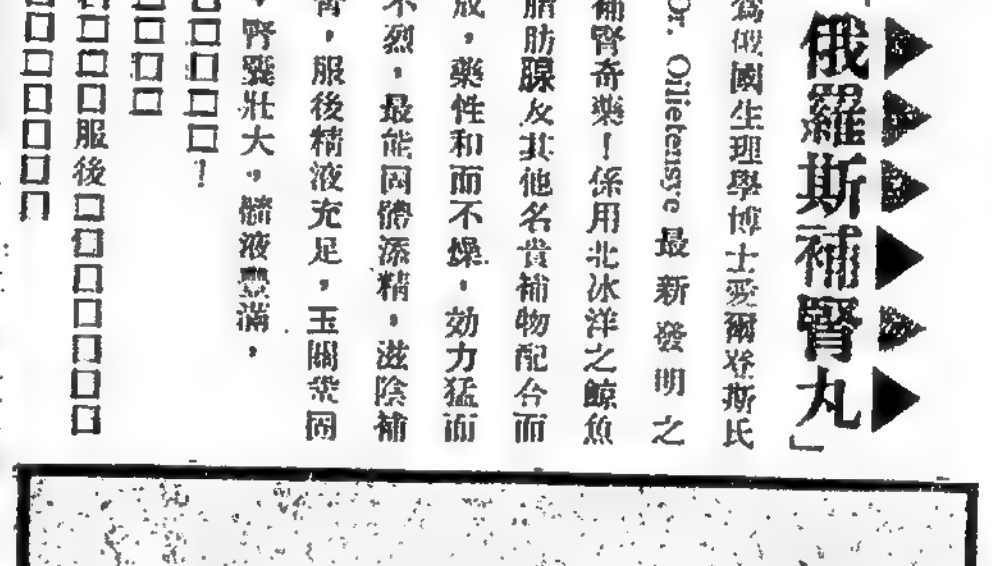 俄羅斯補腎丸」
俄國生理學博士愛爾登斯氏
Dr. 最新發明之
補腎奇藥!係用北冰洋之鯨魚
脂肪腺及其他名貴補物配合而
成,藥性和而不燥,効力猛而
不烈,最能固體添精,滋陰補
腎,服後精液充足,玉關鞏固
,腎囊壯大,髓液豐滿,
□□□□!
□□□
□□□服後□□□□□□□
□□□□□□